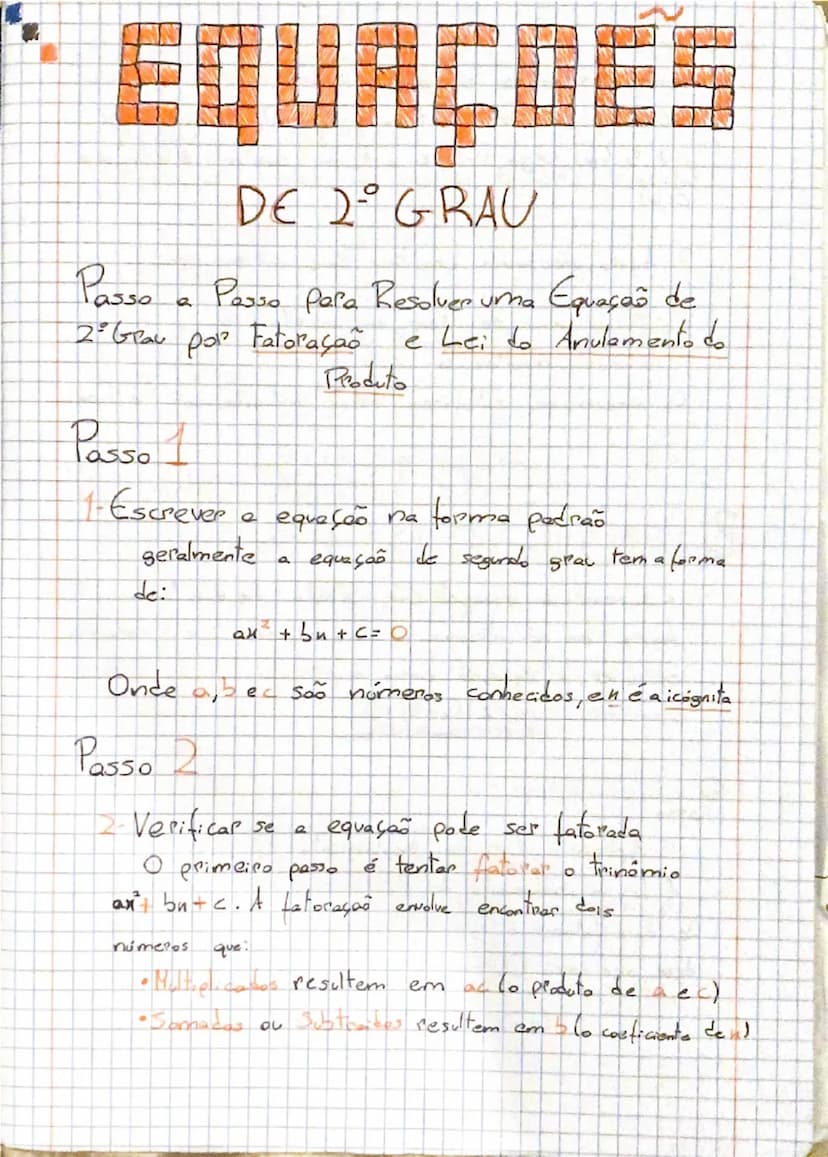 EQUAÇÕES
DE 2º GRAU
Passo a Passo para Resolver uma Equaçaõ de
2º Grau por Fatoraçaõ e Lei do Anulamento do
Produto
Passo 1
1-Escrever a equaçaõ na forma padraõ
geralmente a equaçaõ de segundo grau tem a forma
de:
ax² + bx + c = 0
Onde a, b e c saõ números conhecidos, e x é a icógnita
Passo 2
2-Verificar se a equaçaõ pode ser fatorada
O primeiro passo é tentar fatorar o trinômio
ax² + bx + c. A fatoraçaõ envolve encontrar dois
números que:
• Multiplicados resultem em ac (o produto de a e c)
• Somados ou Subtraídos resultem em b (o coeficiente de x)